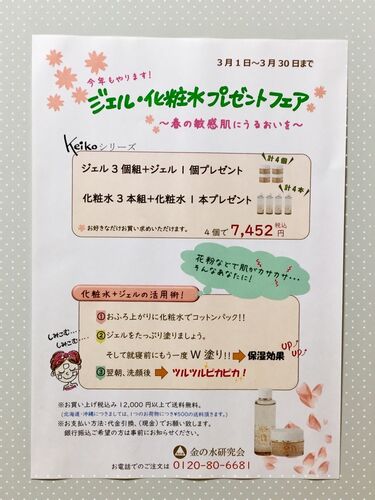 3月1日〜3月30日まで
今年もやります!
ジェル・化粧水プレゼントフェア
〜春の敏感肌にうるおいを〜
Keikoシリーズ
計4個
ジェル3個組+ジェル1個プレゼント
計4本
化粧水3本組+化粧水1本プレゼント
お好きなだけお買い求めいただけます。
4個で7,452円税込
花粉などで肌がカサカサ…
そんなあなたに!
化粧水+ジェルの活用術!
しみこむ…
しみこむ…
①おふろ上がりに化粧水でコットンパック!!
②ジェルをたっぷり塗りましょう。
そして就寝前にもう一度W塗り!!➡保湿効果
UP UP
③翌朝、洗顔後➡ツルツルピカピカ!
※お買い上げ税込み12,000円以上で送料無料。
(北海道・沖縄につきましては、1つのお荷物につき¥500の送料頂きます。)
※お支払い方法:代金引換、(現金)でお願い致します。
銀行振込ご希望の方は事前にお知らせください。
金の水研究会
お電話でのご注文は 0120-80-6681